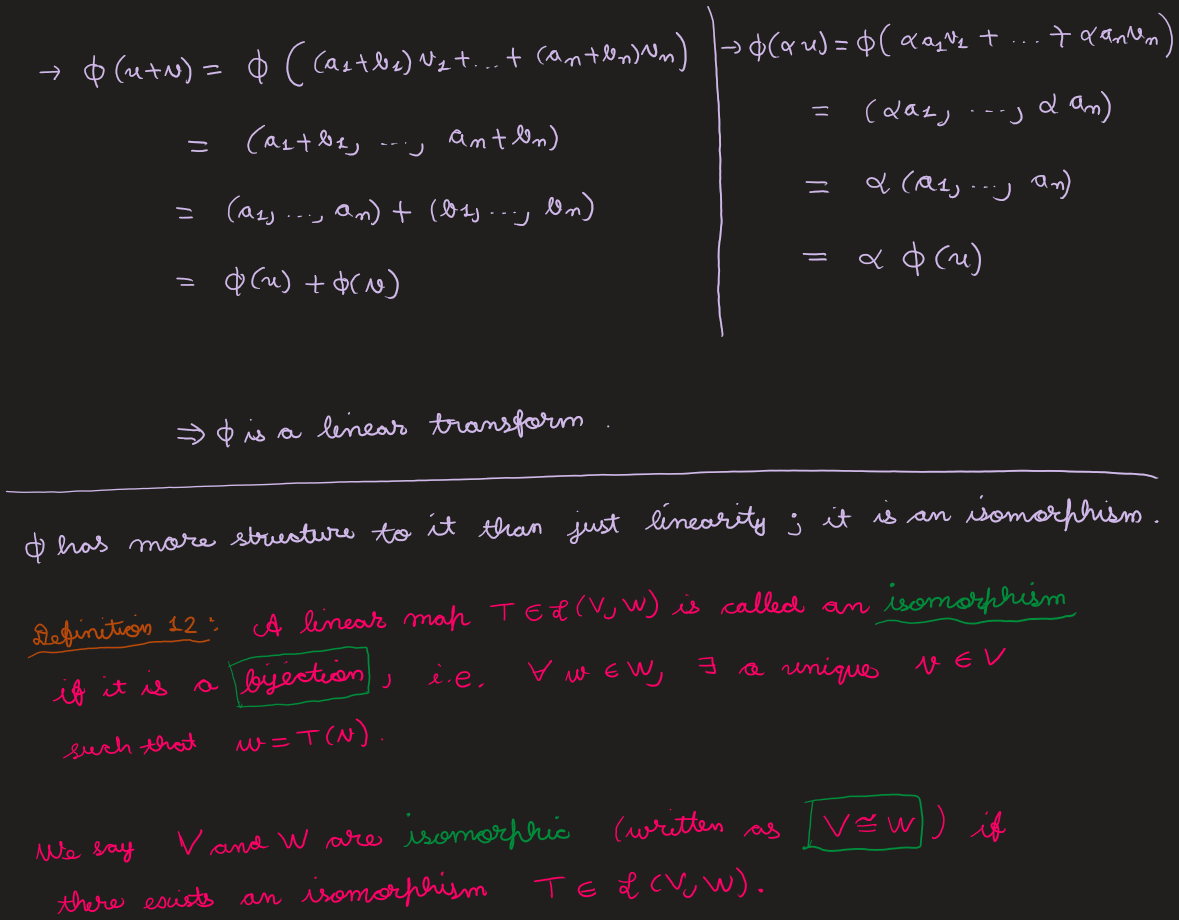 → ϕ(u+v) = ϕ((a₁+b₁)v₁+...+(aₙ+bₙ)vₙ)
= (a₁+b₁, ..., aₙ+bₙ)
= (a₁, ..., aₙ) + (b₁, ..., bₙ)
= ϕ(u) + ϕ(v)
→ ϕ(αu) = ϕ(αa₁v₁ + ... + αaₙvₙ)
= (αa₁, ..., αaₙ)
= α(a₁, ..., aₙ)
= αϕ(u)
⇒ ϕ is a linear transform.
ϕ has more structure to it than just linearity; it is an isomorphism.
Definition 12: A linear map T ∈ ℒ(V,W) is called an isomorphism
if it is a bijection, i.e. ∀ w ∈ W, ∃ a unique v ∈ V
such that w = T(v).
We say V and W are isomorphic (written as V ≅ W) if
there exists an isomorphism T ∈ ℒ(V,W).